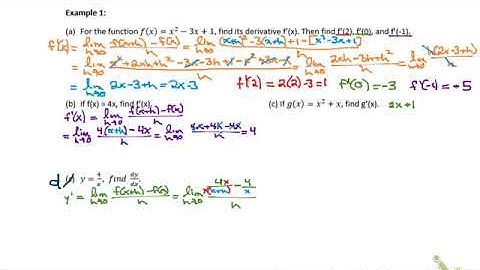 Example 1:
(a) For the function f(x) = x² − 3x + 1, find its derivative f'(x). Then find f'(2), f'(0), and f'(-1).
f'(x) = lim h→0 f(x+h) − f(x) / h = lim h→0 (x+h)² − 3(x+h) + 1 − [x² − 3x + 1] / h
= lim h→0 x² + 2xh + h² − 3x − 3h + 1 − x² + 3x − 1 / h = lim h→0 2xh − 3h + h² / h = lim h→0 h(2x − 3 + h) / h
= lim h→0 2x − 3 + h = 2x − 3 f'(2) = 2(2) − 3 = 1 f'(0) = −3 f'(−1) = −5
(b) If f(x) = 4x, find f'(x). (c) If g(x) = x² + x, find g'(x). 2x + 1
f'(x) = lim h→0 f(x+h) − f(x) / h
= lim h→0 4(x+h) − 4x / h = lim h→0 4x + 4h − 4x / h = 4
d) y = 4/x, find dy/dx.
y' = lim h→0 f(x+h) − f(x) / h = lim h→0 4x / x(x+h) − 4/x / h